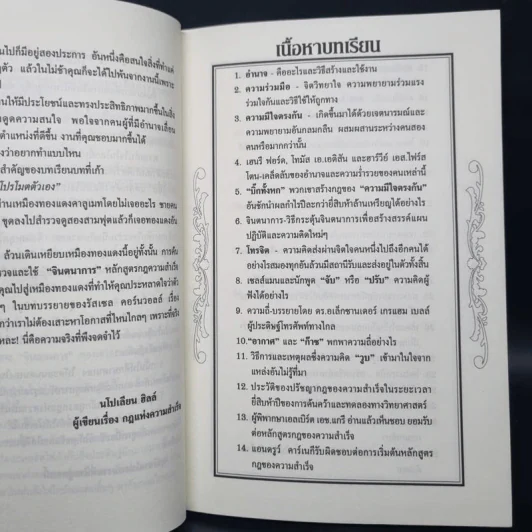 นไปก็มีอยู่สองประการ อันหนึ่งคือสนใจสิ่งที่ทำแค่
ตัว แล้วไม่ช้าคุณก็จะได้ไปพ้นจากงานนี้เพราะ
นให้มีประโยชน์และทรงประสิทธิภาพมากขึ้นในสิ่ง
ดูดความสนใจ พอใจจากคนผู้ที่มีอำนาจเลื่อน
ตำแหน่งที่ดีขึ้น งานที่คุณชอบมากขึ้นได้
งว่าอยากทำแบบไหน
สำคัญของบทเรียนบทที่เก้า
โปรโมตตัวเอง"
่านเหมืองทองแดงคาลูเมทโดยไม่เจออะไร ชายคน
ขุดลงไปสำรวจดูสองสามฟุตแล้วก็เจอทองแดงอัน
ล้วนเดินเหยียบเหมืองทองแดงนี้อยู่ทั้งนั้น การค้น
รวจและใช้ "จินตนาการ" หลักสูตรกฎความสำเร็จ
คุณไปสู่เหมืองทองแดงที่ทำให้คุณประหลาดใจว่าตัว
ๆ ในบทบรรยายของรัสเซล คอร์นวอลล์ เรื่อง
กว่าเราไม่ต้องเสาะหาโอกาสที่ไหนไกลๆ เพราะที่จริง
หละ! นี่คือความจริงที่พึงจดจำไว้
นโปเลียน ฮิลล์
ผู้เขียนเรื่อง กฎแห่งความสำเร็จ
เนื้อหาบทเรียน
1. อำนาจ - คืออะไรและวิธีสร้างและใช้งาน
2. ความร่วมมือ - จิตวิทยาใจ ความพยายามร่วมแรง
ร่วมใจกันและวิธีใช้ให้ถูกทาง
3. ความมีใจตรงกัน - เกิดขึ้นมาได้ด้วยเจตนารมณ์และ
ความพยายามอันกลมกลืน ผสมผสานระหว่างคนสอง
คนหรือมากกว่านั้น
4. เฮนรี ฟอร์ด, โทมัส เอ.เอดิสัน และฮาร์วีย์ เอส.ไฟร์ส
โตน-เคล็ดลับของอำนาจและความร่ำรวยของคนเหล่านี้
5. "บิ๊กทั้งหก" พวกเขาสร้างกฎของ "ความมีใจตรงกัน"
อันชักนำผลกำไรปีละกว่ายี่สิบห้าล้านเหรียญได้อย่างไร
6. จินตนาการ-วิธีกระตุ้นจินตนาการเพื่อสร้างสรรค์แผน
ปฏิบัติและความคิดใหม่ๆ
7. โทรจิต - ความคิดส่งผ่านจิตคนหนึ่งไปถึงอีกคนได้
อย่างไรสมองทุกอันล้วนมีสถานีรับและส่งอยู่ในตัวทั้งสิ้น
8. เซลส์แมนและนักพูด "จับ" หรือ "ปรับ" ความคิดผู้
ฟังได้อย่างไร
9. ความถี่-บรรยายโดย ดร.อเล็กซานเดอร์ เกรแฮม เบลล์
ผู้ประดิษฐ์โทรศัพท์ทางไกล
10. "อากาศ" และ "ก๊าซ" พกพาความถี่อย่างไร
11. วิธีการและเหตุผลซึ่งความคิด "วูบ" เข้ามาในใจจาก
แหล่งอันไม่รู้ที่มา
12. ประวัติของปรัชญากฎของความสำเร็จในระยะเวลา
ยี่สิบห้าปีของการค้นคว้าและทดลองทางวิทยาศาสตร์
13. ผู้พิพากษาเอลเบิร์ต เอช.แกรี อ่านแล้วเห็นชอบ ยอมรับ
ต่อหลักสูตรกฎของความสำเร็จ
14. แอนดรูว์ คาร์เนกีรับผิดชอบต่อการเริ่มต้นหลักสูตร
กฎของความสำเร็จ